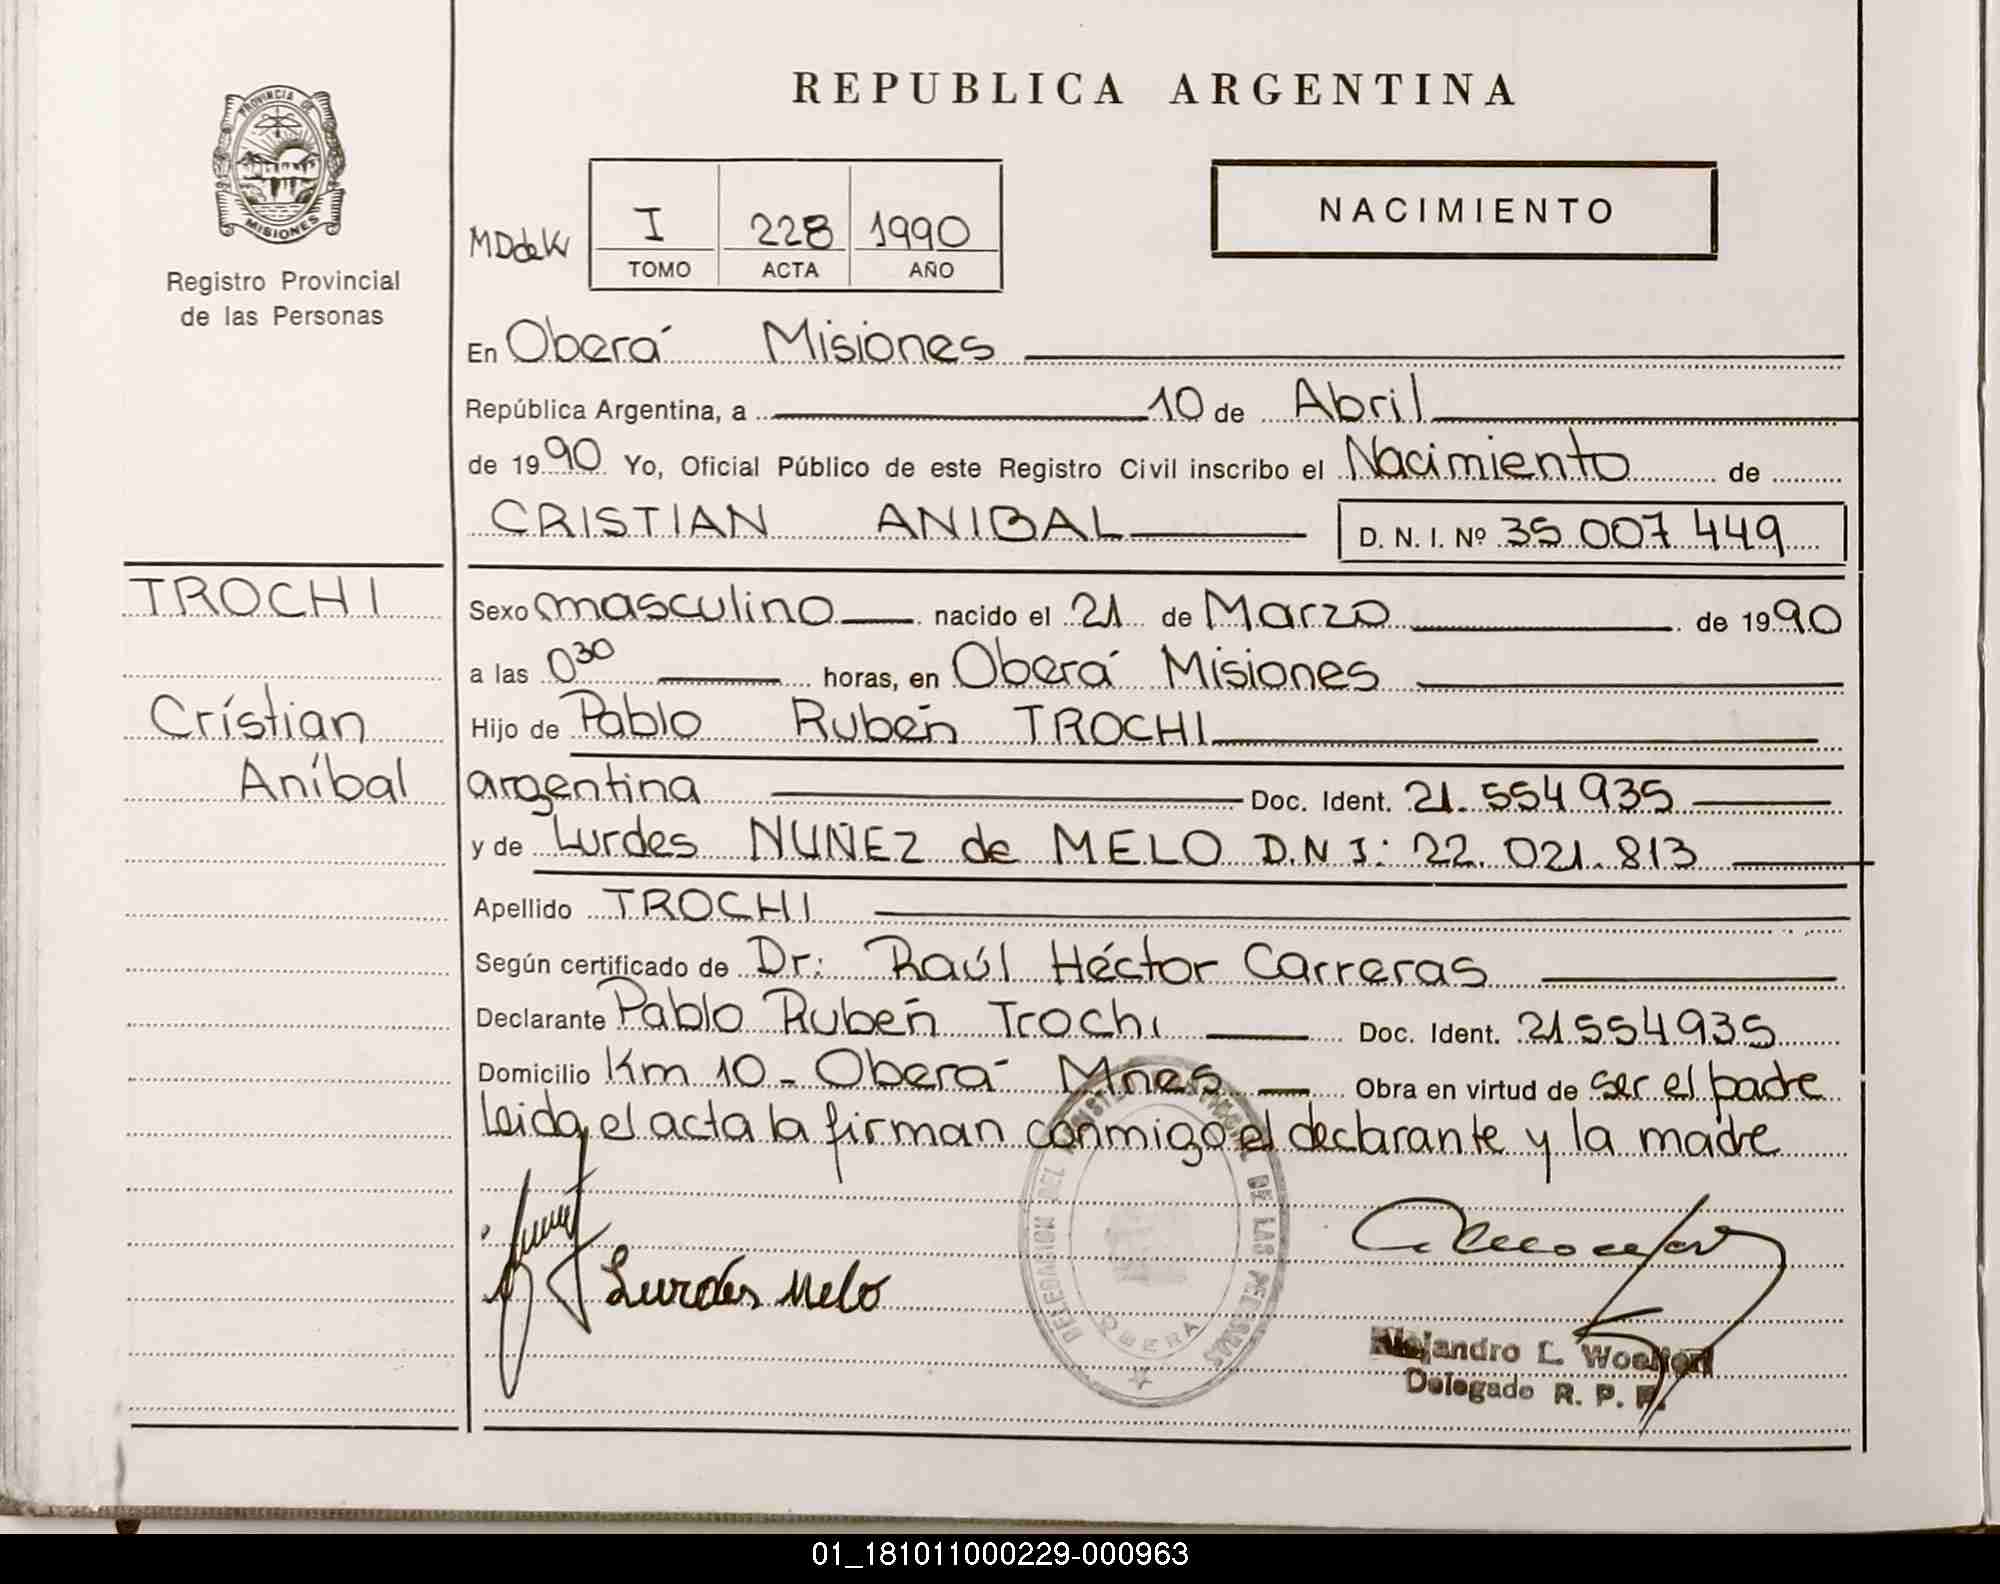 PROVINCIA DE
MISIONES
Registro Provincial
de las Personas
REPUBLICA ARGENTINA
NACIMIENTO
MDdeK
I 228 1990
TOMO ACTA AÑO
En Oberá Misiones
República Argentina, a 10 de Abril
de 1990 Yo, Oficial Público de este Registro Civil inscribo el Nacimiento de
CRISTIAN ANIBAL D. N. I. Nº 35.007.449
TROCHI
Cristian
Aníbal
Sexo masculino nacido el 21 de Marzo de 1990
a las 0³⁰ horas, en Oberá Misiones
Hijo de Pablo Rubén TROCHI
argentina Doc. Ident. 21.554.935
y de Lurdes NUÑEZ de MELO D.N.I: 22.021.813
Apellido TROCHI
Según certificado de Dr: Raúl Héctor Carreras
Declarante Pablo Rubén Trochi Doc. Ident. 21554935
Domicilio Km 10 - Oberá Mnes Obra en virtud de ser el padre
Leida el acta la firman conmigo el declarante y la madre
Lurdes Melo
DELEGACION DEL DE LAS PERSONAS
OBERA
Alejandro L.
Delegado R. P. P.
01_181011000229-000963